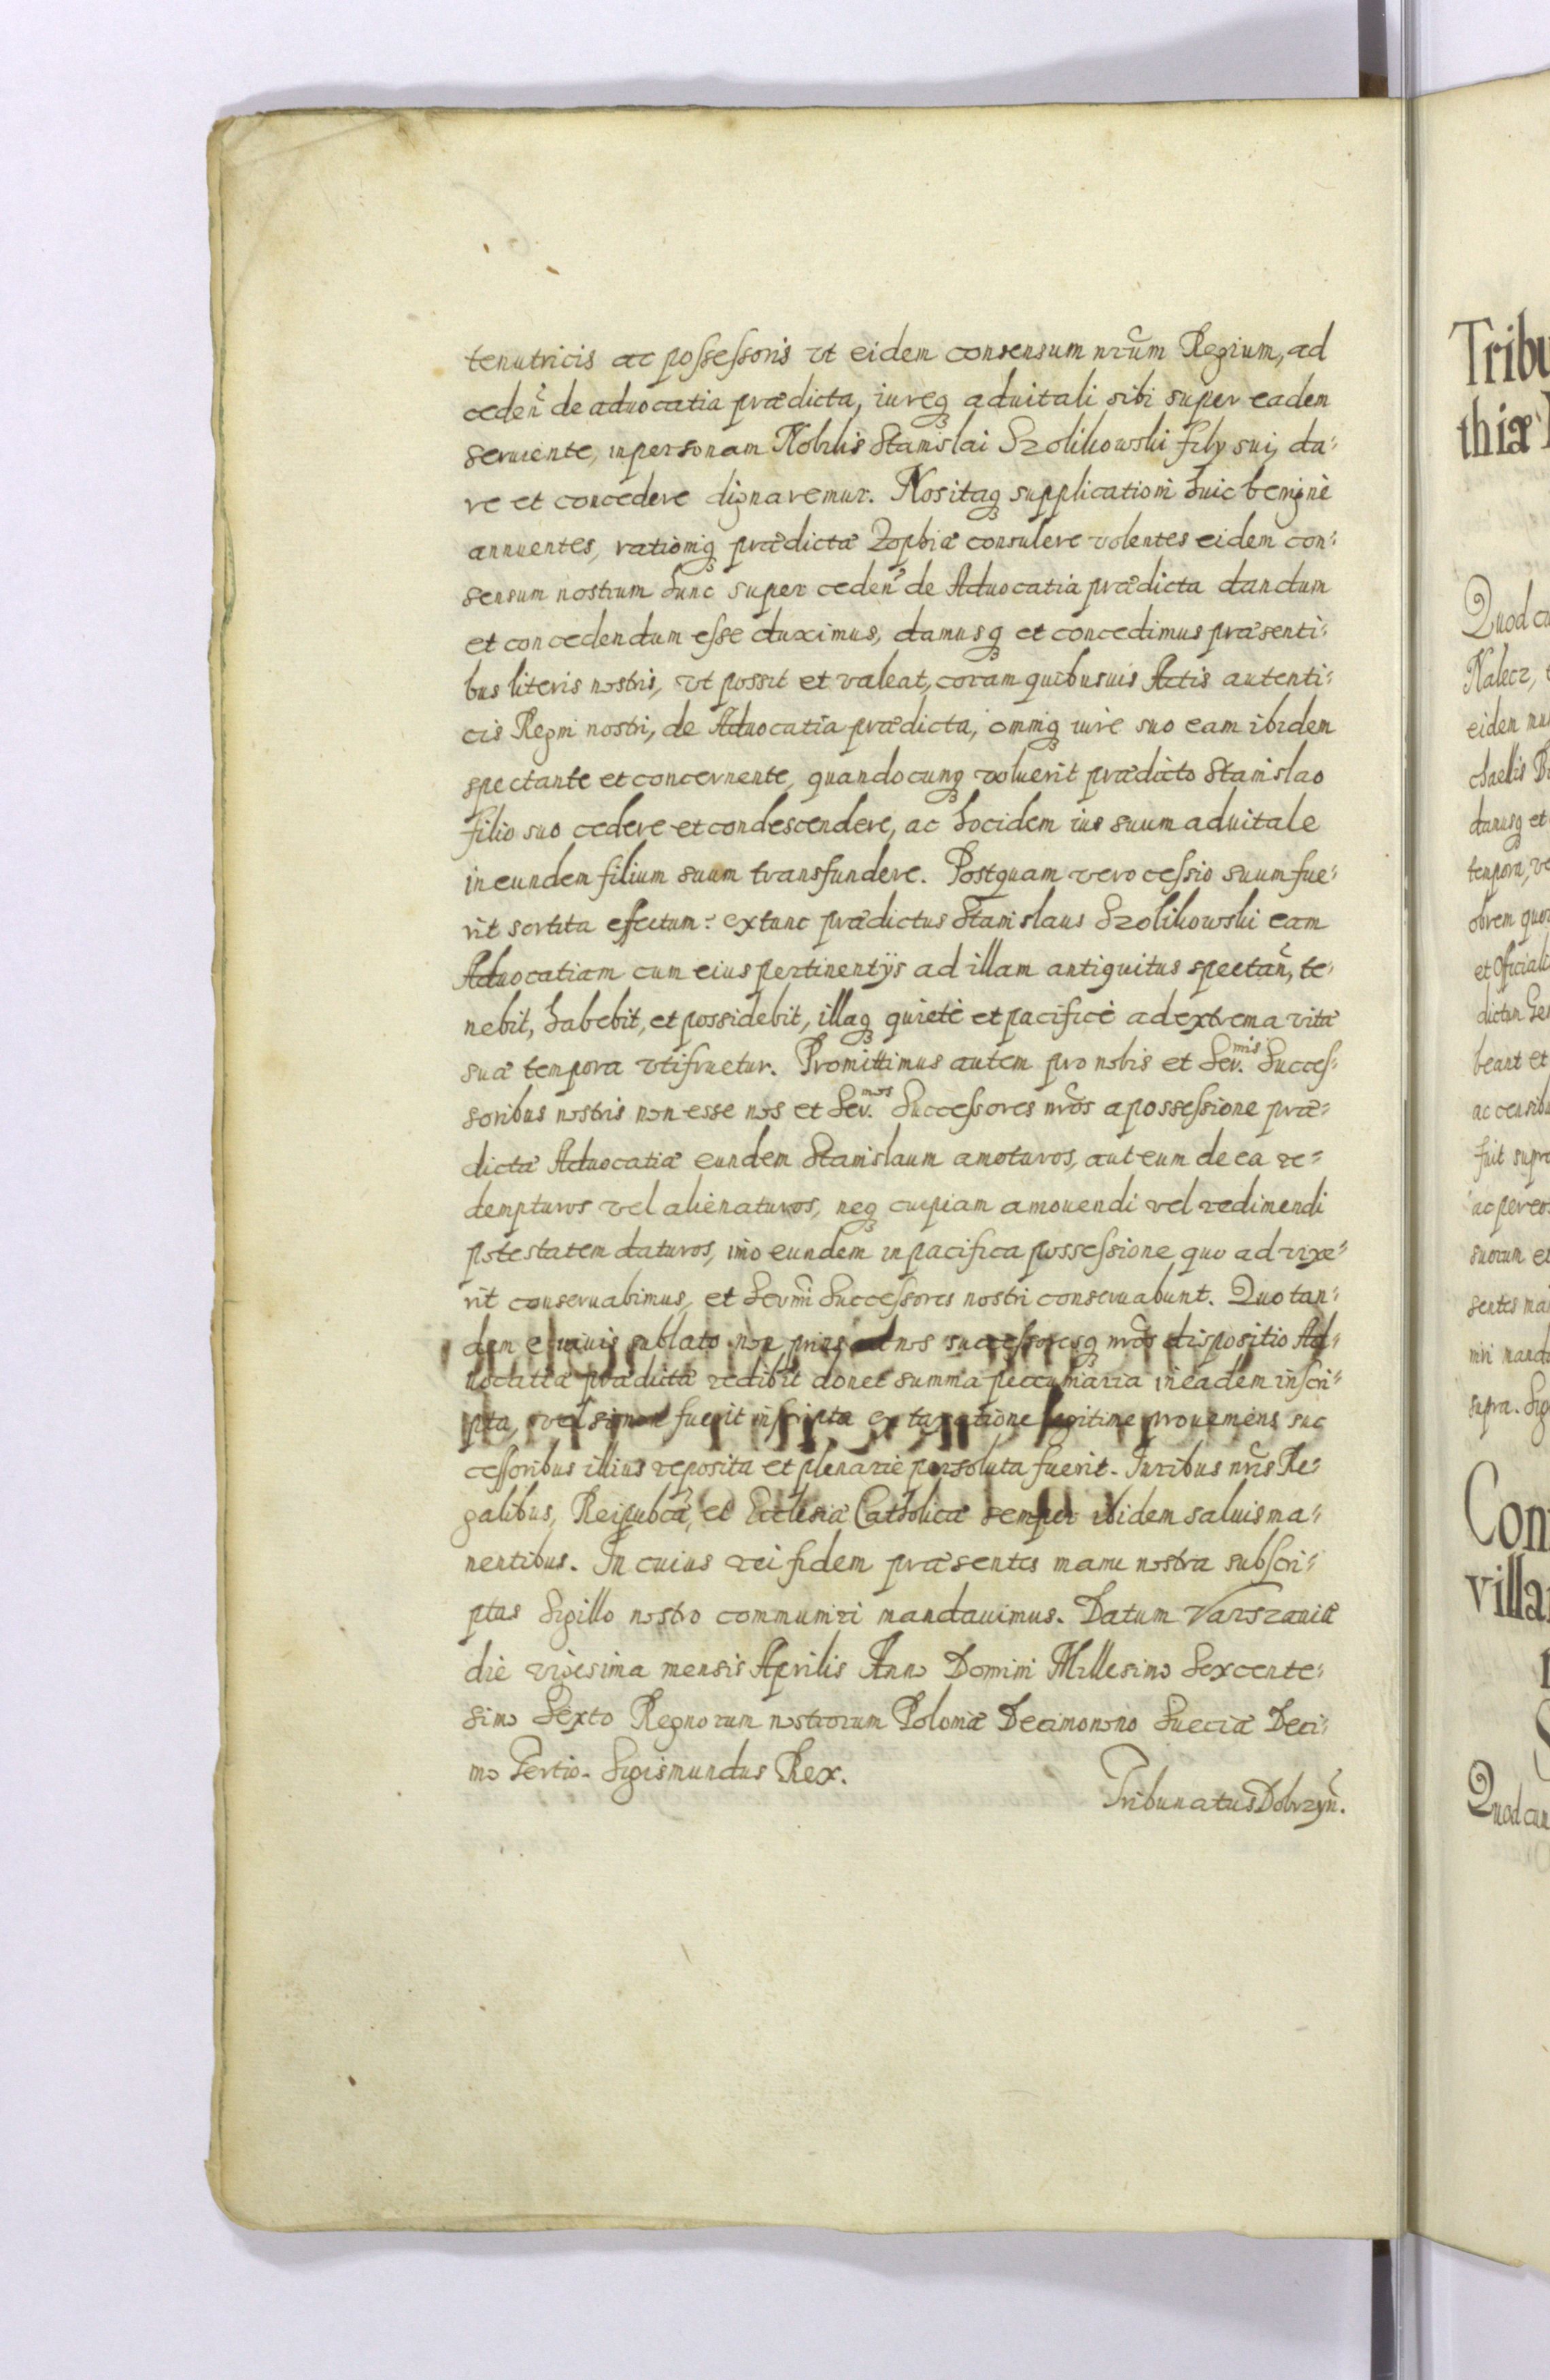 tenutricis ac possessoris vt eidem consensum nr̃um Regium, ad
ceden̄ de aduocatia prædicta, iureq3 aduitali sibi super eadem
seruiente, in personam Nobilis Stanislai Szolikowski filÿ sui, da-
re et concedere dignaremur. Nos itaq3 supplicationi huic benignè
annuentes, rationiq3 prædictæ Zophiæ consulere volentes eidem con-
sensum nostrum hunc super ceden̄ de Aduocatia prædicta dandum
et concedendum esse duximus, damusq3 et concedimus præsenti-
bus literis nostris, vt possit et valeat, coram quibusuis Actis autenti-
cis Regni nostri, de Aduocatia prædicta, omniq3 iure suo eam ibidem
spectante et concernente, quandocunq3 voluerit prædicto Stanislao
filio suo cedere et condescendere, ac hocidem ius suum aduitale
in eundem filium suum transfundere. Postquam vero cessio suum fue-
rit sortita effectum: extunc prædictus Stanislaus Szolikowski eam
Aduocatiam cum eius pertinentÿs ad illam antiquitus spectan̄, te-
nebit, habebit, et possidebit, illaq3 quietè et pacificè ad extrema vitæ
suæ tempora vtifruetur. Promittimus autem pro nobis et Ser.mis Succes-
soribus nostris non esse nos et Ser.mos Successores nr̃os a possessione præ-
dictæ Aduocatiæ eundem Stanislaum amoturos, aut eum de ea re-
dempturos vel alienaturos, neq3 cuipiam amouendi vel redimendi
potestatem daturos, imo eundem in pacifica possessione quo ad vixe-
rit conseruabimus, et Ser̃mi Successores nostri conseruabunt. Quo tan-
dem e viuis sublato non prius ad nos successoresq3 nr̃os dispositio Ad-
uocatiæ prædictæ redibit donec summa pecuniaria in eadem inscri-
pta, vel si non fuerit inscripta ex taxatione legitime proueniens suc
cessoribus illius reposita et plenarie persoluta fuerit. Iuribus nr̃is Re-
galibus, Reipubcæ, et Ecclesiæ Catholicæ semper ibidem saluis ma-
nentibus. In cuius rei fidem præsentes manu nostra subscri-
ptas Sigillo nostro communiri mandauimus. Datum Varszauiæ
die vigesima mensis Aprilis Anno Domini Millesimo Sexcente-
simo Sexto Regnorum nostrorum Poloniæ Decimonono Sueciæ Deci-
mo Tertio. Sigismundus Rex.
Tribunatus Dobrzyn̄.
Tribu
thiæ
Quod cu
Nalecz,
eidem
chaelis
danusq3 et
tempora, ve
obrem quoa
et Oficiali
dictum Ge
beant et
ac censibu
fuit supra
ac per eos
suorum et
sentes ma
niri manda
supra. Sig
Con
villa
Quod cum